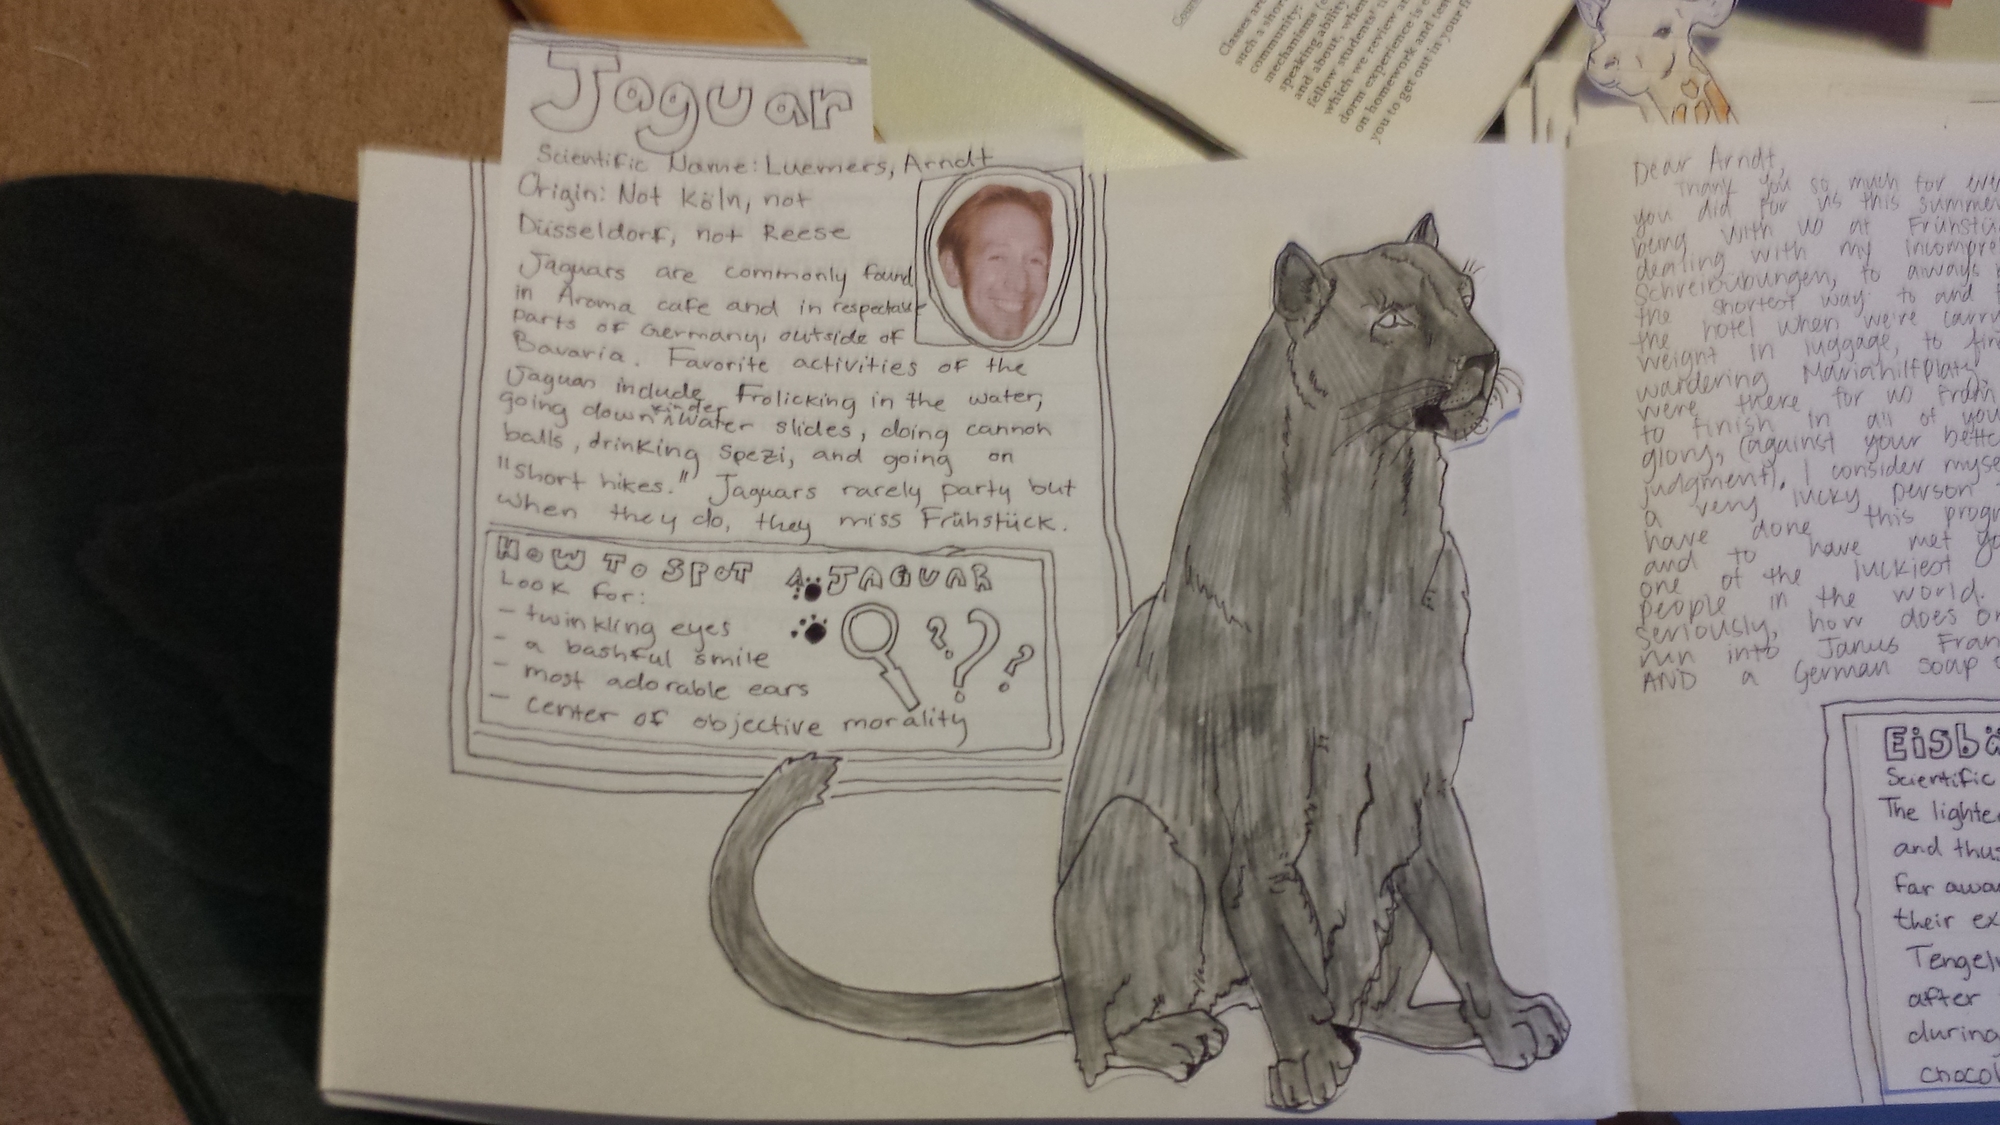 Jaguar
Scientific Name: Luemers, Arndt
Origin: Not Köln, not
Düsseldorf, not Reese
Jaguars are commonly found
in Aroma cafe and in respectable
parts of Germany, outside of
Bavaria. Favorite activities of the
Jaguar include frolicking in the water,
going down kinder water slides, doing cannon
balls, drinking Spezi, and going on
"short hikes." Jaguars rarely party but
when they do, they miss Frühstück.
HOW TO SPOT A JAGUAR
Look for:
- twinkling eyes
- a bashful smile
- most adorable ears
- center of objective morality
? ? ?
Classes are
such a shor
community:
mechanisms (e
speaking ability
and about, whe
fellow students' r
which we review a
dorm experience is
on homework and ten
you to get out in your fr
Dear Arndt,
Thank you so much for eve
you did for us this summer
being with us at Frühstü
dealing with my incompre
Schreibübungen, to always
the shortest way to and f
the hotel when we're carry
weight in luggage, to fin
wandering Mariahilfplatz
were there for us from
to finish in all of you
glory, (against your bette
judgment). I consider myse
a very lucky person t
have done this progr
and to have met yo
one of the luckiest
people in the world.
Seriously, how does on
run into Janus Fran
AND a German soap
Eisbä
Scientific
The lighte
and thus
far awa
their ex
Tengel
after
during
chocol